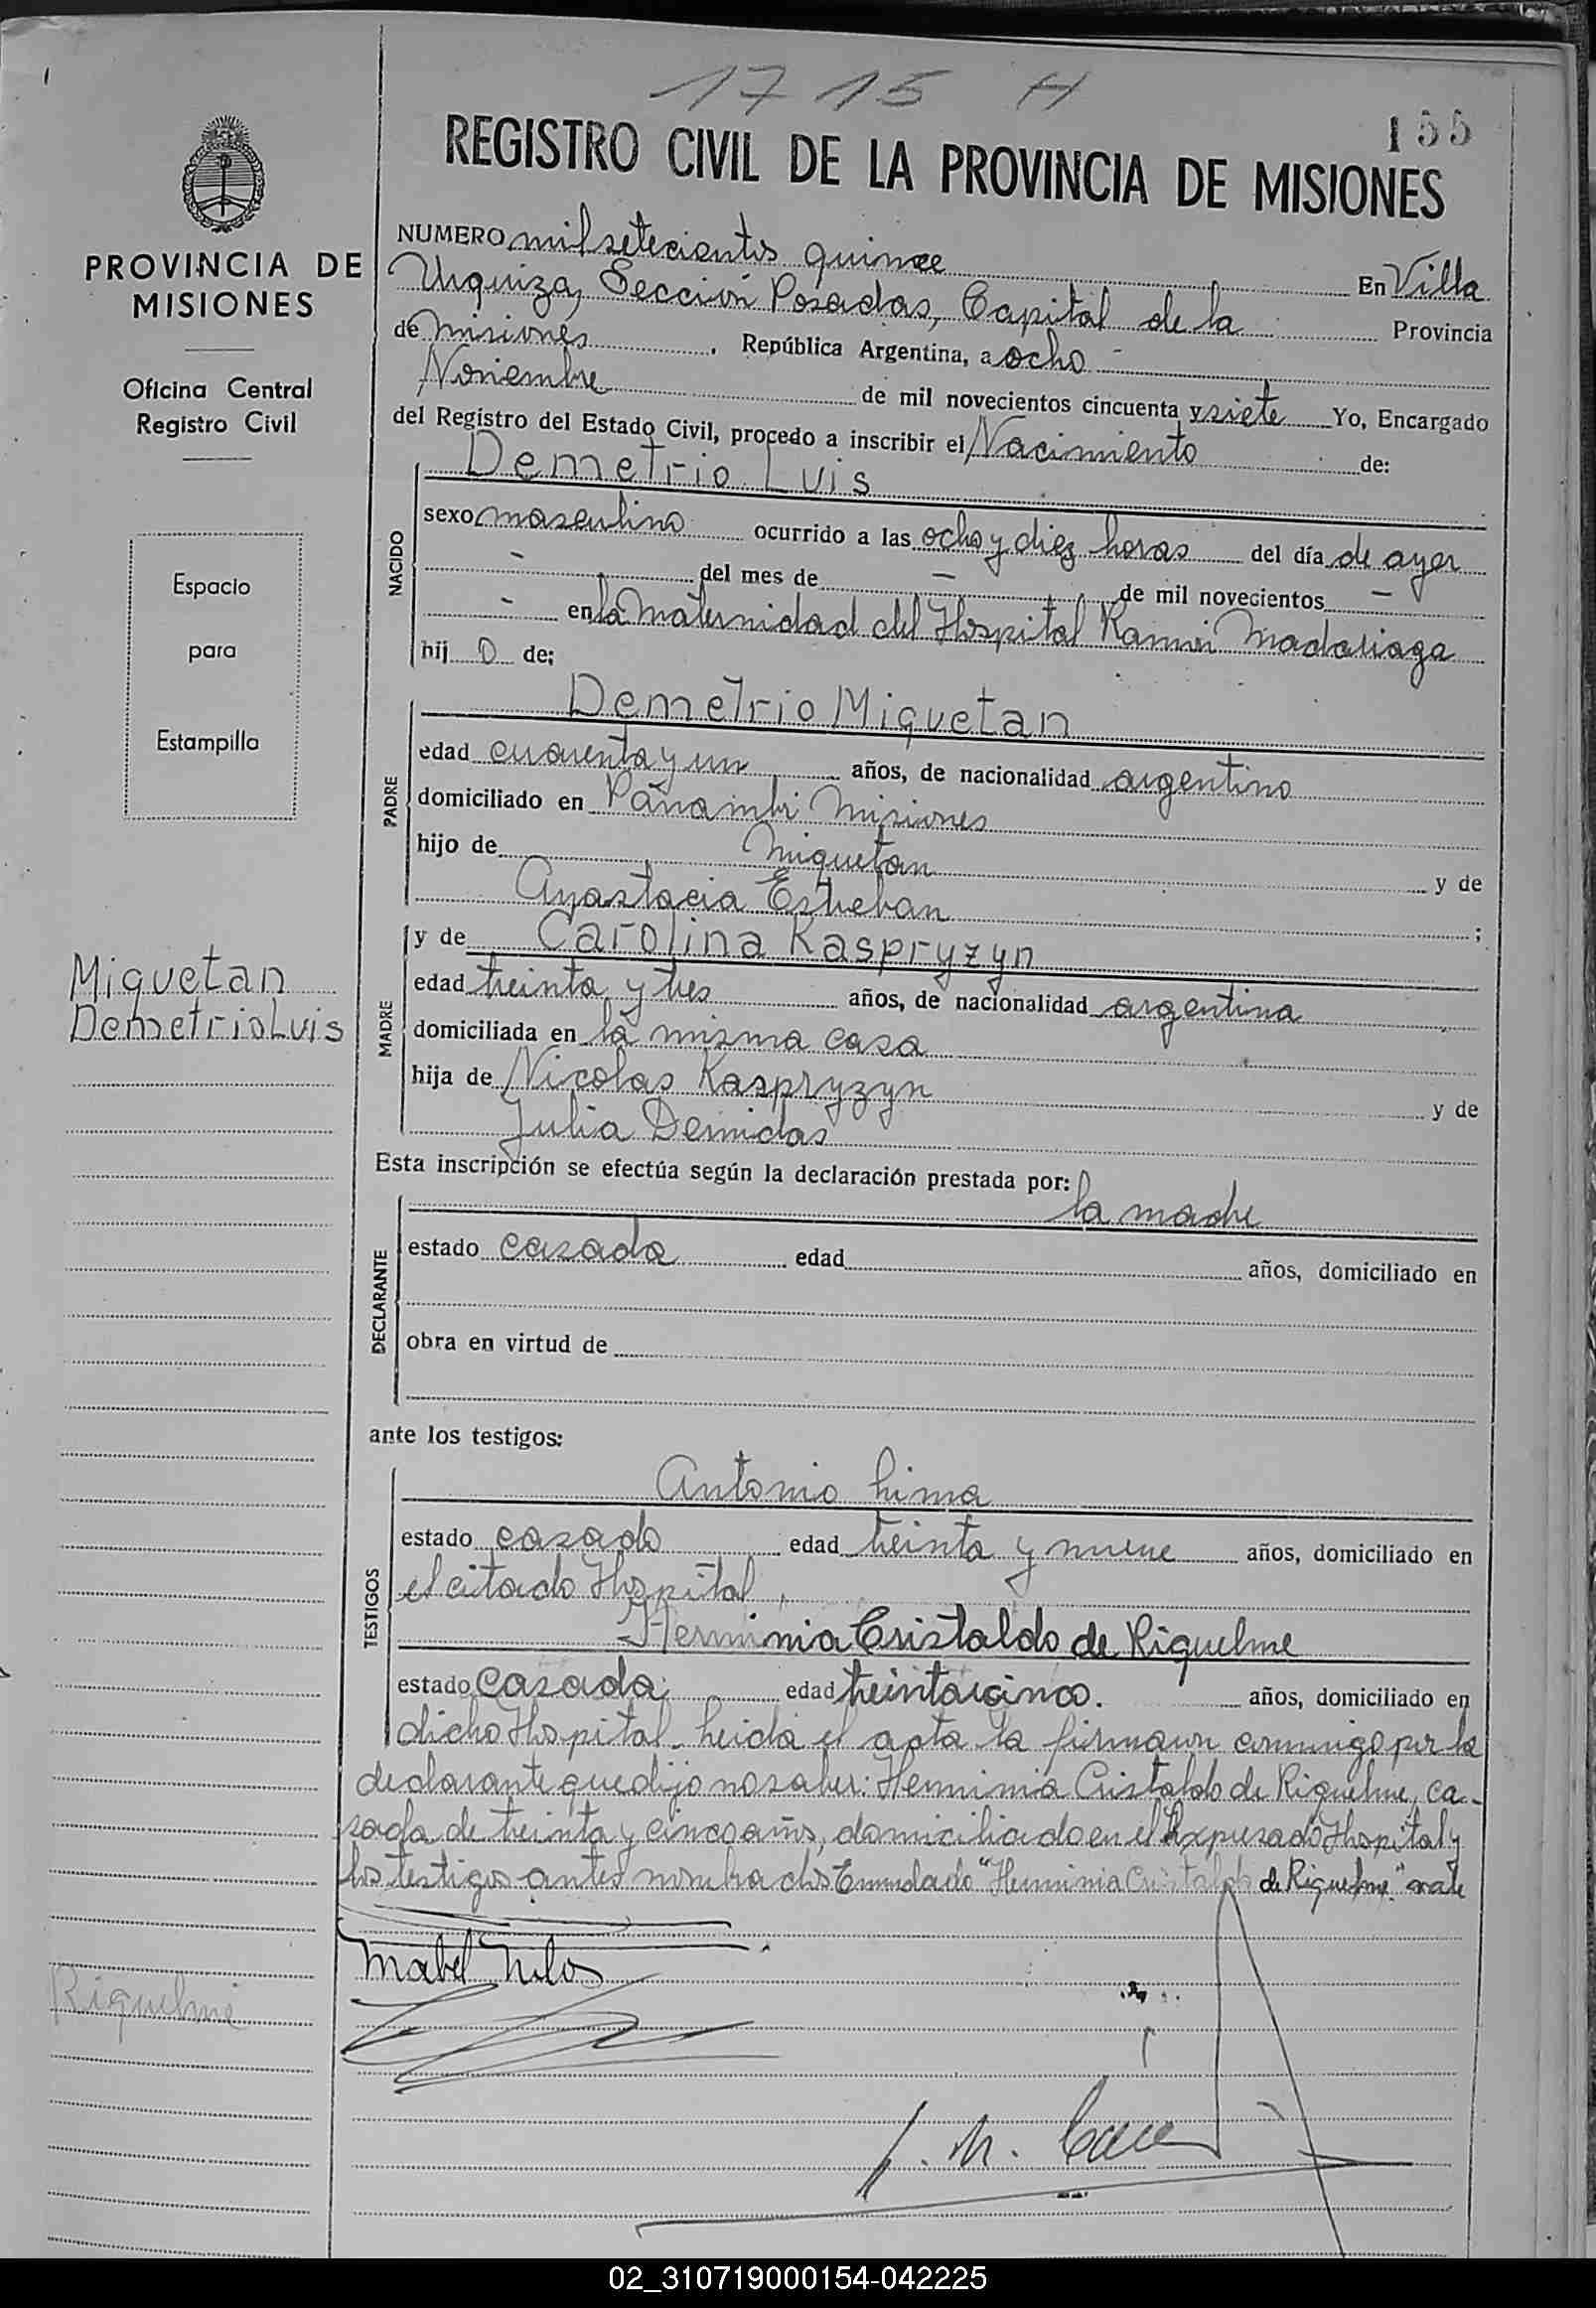 1715 H
155
REGISTRO CIVIL DE LA PROVINCIA DE MISIONES
PROVINCIA DE
MISIONES
Oficina Central
Registro Civil
Espacio
para
Estampilla
Miquetan
Demetrio Luis
Riquelme
NUMERO mil setecientos quince En Villa
Urquiza, Sección Posadas, Capital de la Provincia
de Misiones, República Argentina, a ocho -
Noviembre de mil novecientos cincuenta y siete Yo, Encargado
del Registro del Estado Civil, procedo a inscribir el Nacimiento de:
NACIDO
Demetrio Luis
sexo masculino ocurrido a las ocho y diez horas del día de ayer
- del mes de - de mil novecientos -
- en la Maternidad del Hospital Ramón Madariaga
hij o de:
PADRE
Demetrio Miquetan
edad cuarenta y un años, de nacionalidad argentino
domiciliado en Panambí Misiones
hijo de Miquetan y de
Anastacia Esteban ;
MADRE
y de Carolina Kaspryzyn
edad treinta y tres años, de nacionalidad argentina
domiciliada en la misma casa
hija de Nicolas Kaspryzyn y de
Julia Demidas
Esta inscripción se efectúa según la declaración prestada por:
DECLARANTE
la madre
estado casada edad años, domiciliado en
obra en virtud de
ante los testigos:
TESTIGOS
Antonio Lima
estado casado edad treinta y nueve años, domiciliado en
el citado Hospital,
Herminia Cristaldo de Riquelme
estado casada edad treintaicinco. años, domiciliado en
dicho Hospital. Leida el acta la firmaron conmigo por la
declarante que dijo no saber: Herminia Cristaldo de Riquelme, ca-
sada de treinta y cinco años, domiciliado en el expresado Hospital y
los testigos antes nombrados Enmendado "Herminia Cristaldo de Riquelme" vale
Mabel
02_310719000154-042225